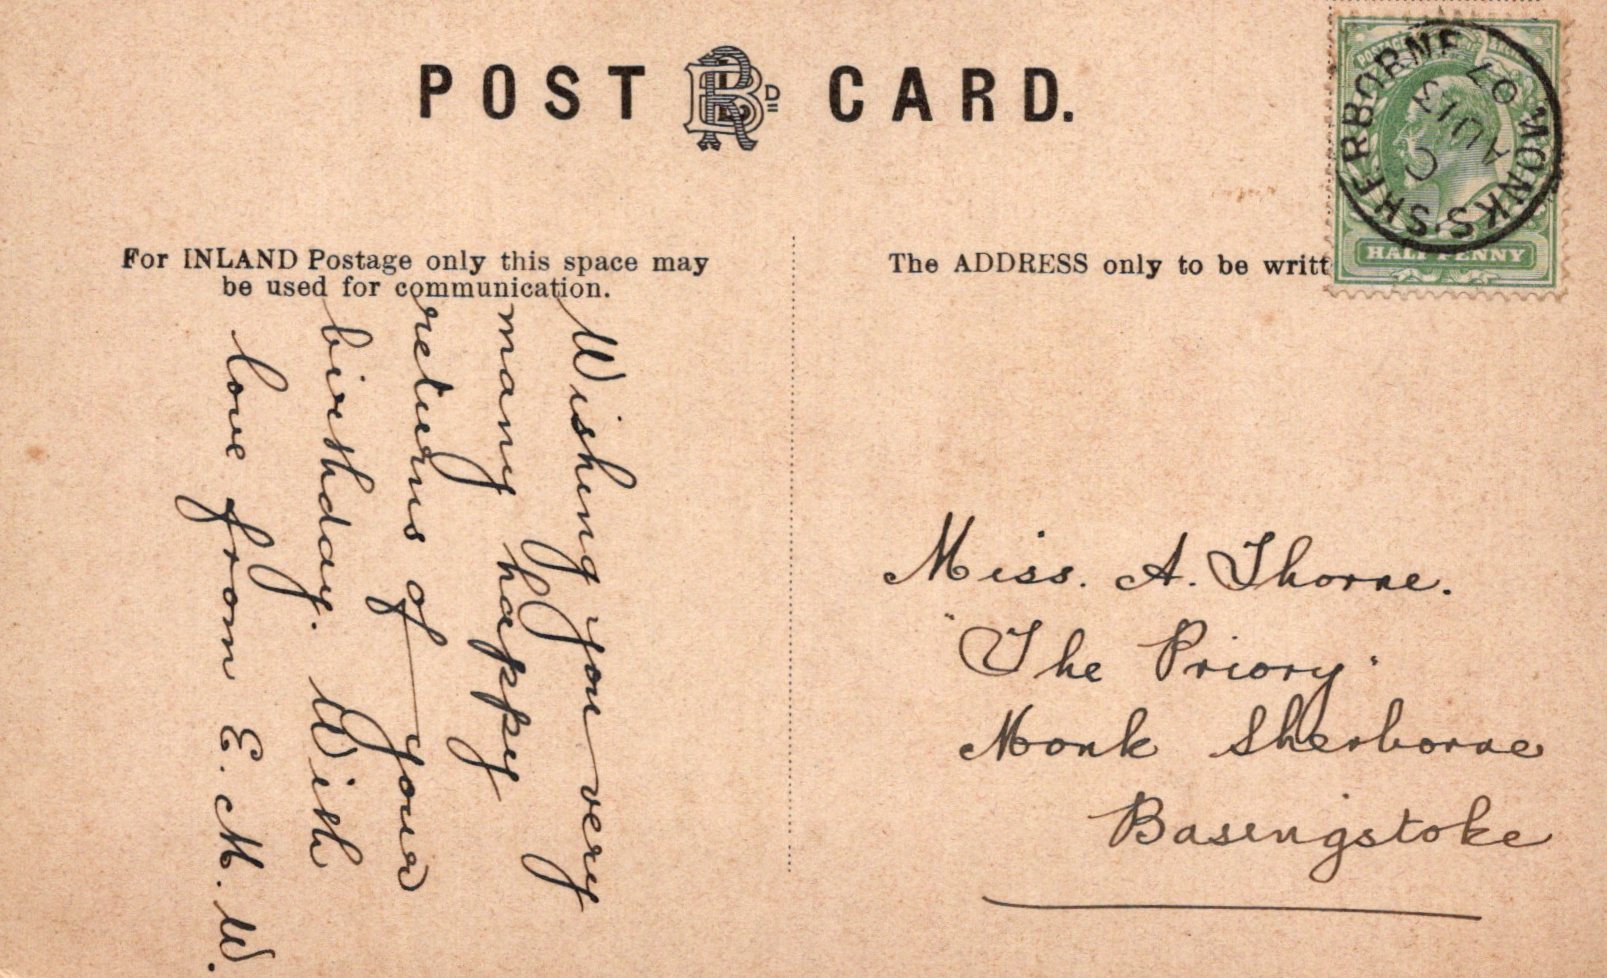 POST RBD CARD.
For INLAND Postage only this space may
be used for communication.
The ADDRESS only to be writt
Wishing you very
many happy
returns of your
birthday. With
love from E. M. W.
Miss. A. Thorne.
"The Priory"
Monk Sherborne
Basingstoke
HALFPENNY
MONK'S SHERBORNE
C
AU 13
07